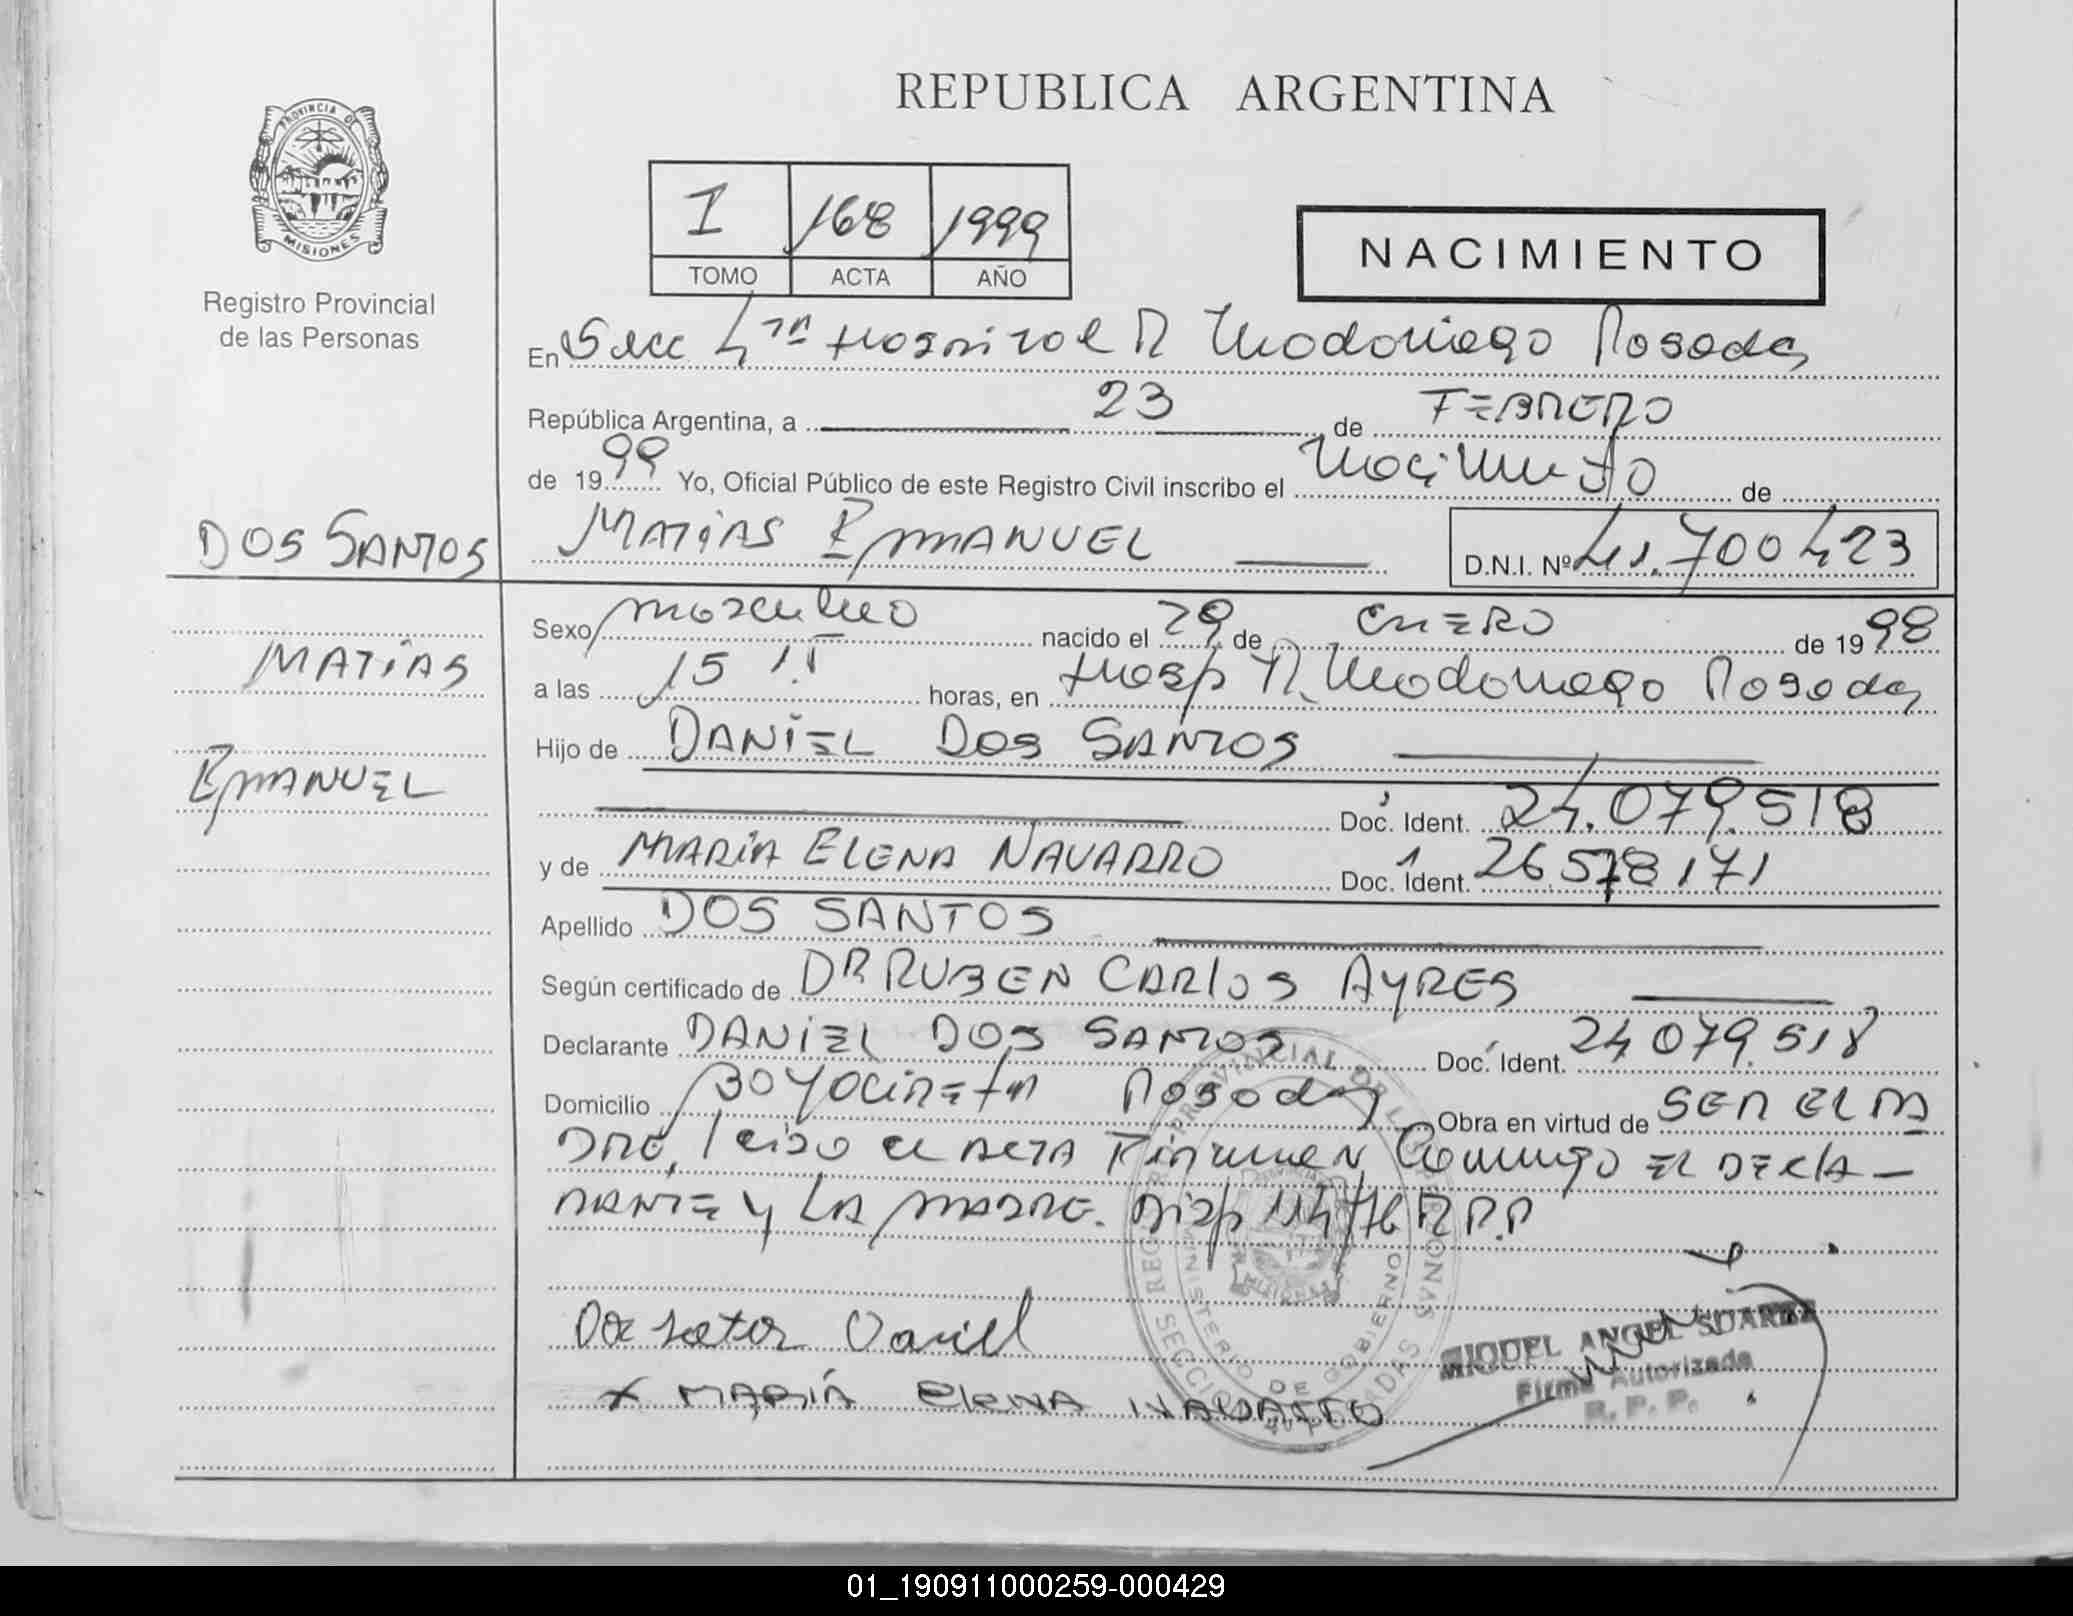 REPUBLICA ARGENTINA
PROVINCIA DE
MISIONES
Registro Provincial
de las Personas
I 168 1999
TOMO ACTA AÑO
NACIMIENTO
En Secc 4ta Hospital R Madariaga Posadas
República Argentina, a 23 de FEBRERO
de 1999 Yo, Oficial Público de este Registro Civil inscribo el Nacimiento de
MATIAS EMANUEL D.N.I. Nº 41.700423
DOS SANTOS
MATIAS
EMANUEL
Sexo masculino nacido el 29 de ENERO de 1998
a las 15 horas, en Hosp R. Madariaga Posadas
Hijo de DANIEL DOS SANTOS
Doc. Ident. 24.079.518
y de MARIA ELENA NAVARRO Doc. Ident. 26578171
Apellido DOS SANTOS
Según certificado de DR RUBEN CARLOS AYRES
Declarante DANIEL DOS SANTOS Doc. Ident. 24079.518
Domicilio Posadas Obra en virtud de SER EL PA
DRE, leido el ACTA Firman Conmigo EL DECLA-
RANTE Y LA MADRE. Disp 114/76 R.P.P
Dos santos Daniel
x MARÍA ELENA NAVARRO
MIGUEL ANGEL SUAREZ
Firma Autorizada
R. P. P.
01_190911000259-000429